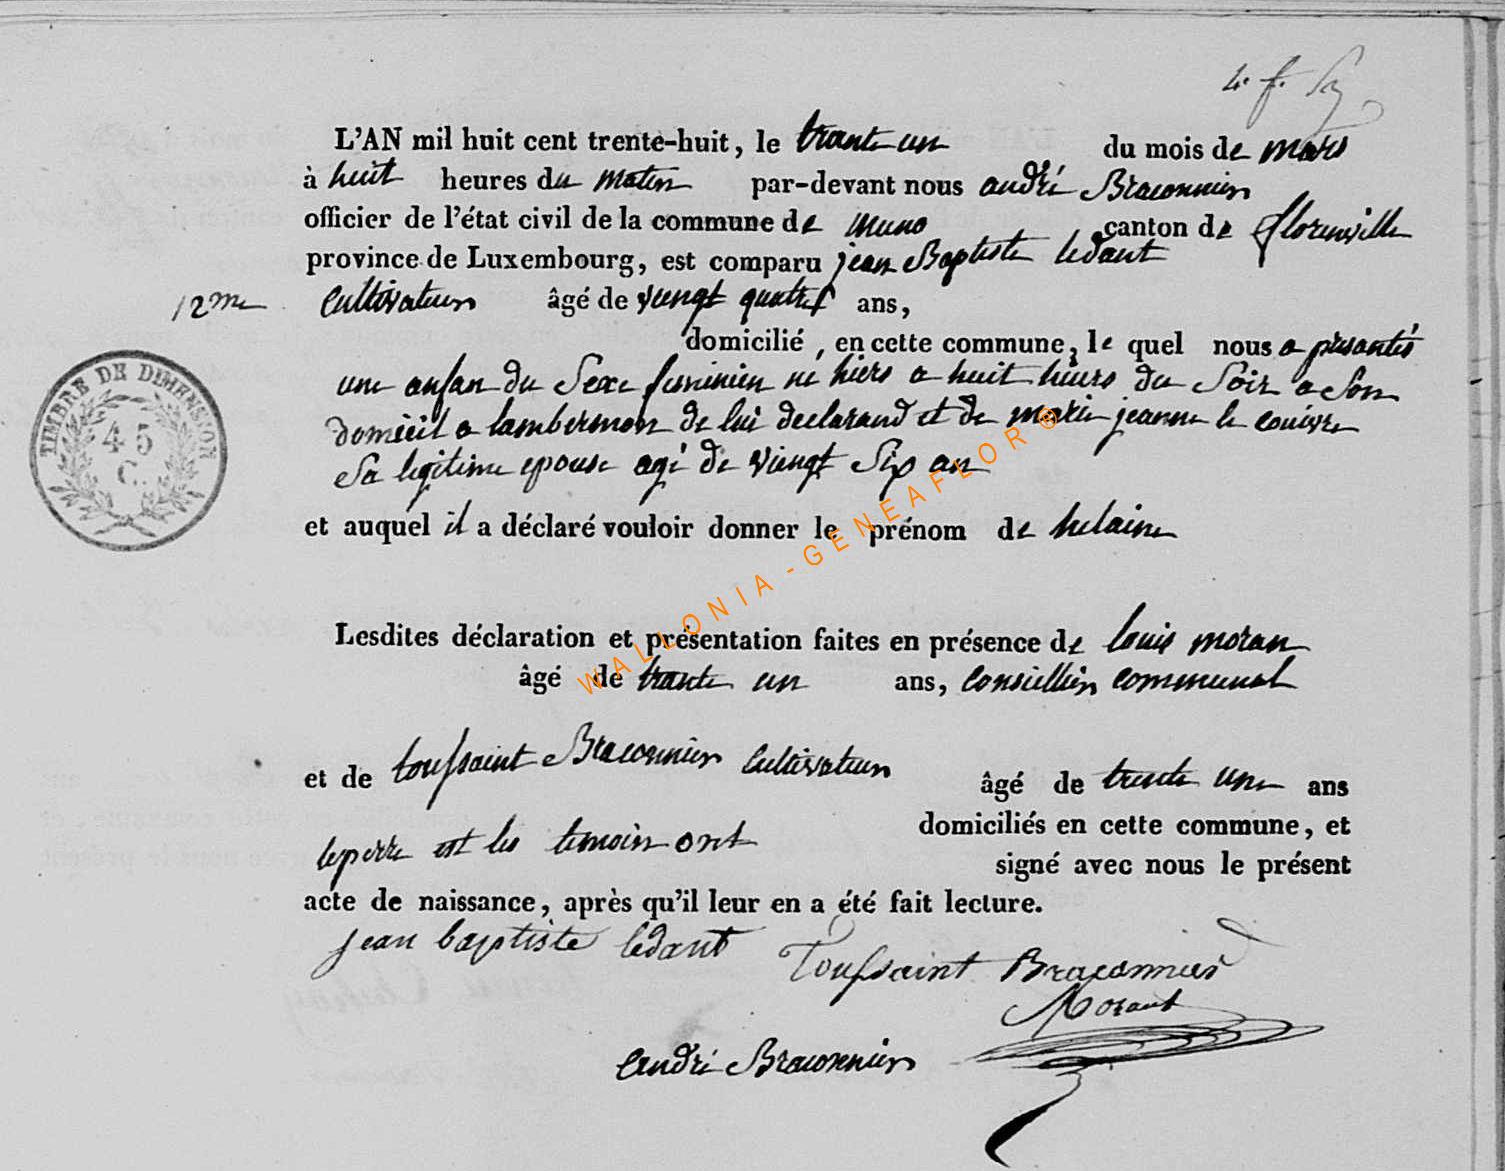 4. f.
L'AN mil huit cent trente-huit, le trante un du mois de mars
à huit heures du matin par-devant nous andré Braconnier
officier de l'état civil de la commune de muno canton de florenville
province de Luxembourg, est comparu jean Baptiste ledant
12me cultivateur âgé de vuingt quatre ans,
domicilié, en cette commune, le quel nous a presantés
une anfan du Sexe feminien ne hiers a huit heurs du Soir a Son
domicil a lambermon de lui declarand et de marie jeanne le couivre
Sa legitime epouse agé de viengt Six an
et auquel il a déclaré vouloir donner le prénom de helaine
TIMBRE DE DIMENSION
45
C.
Lesdites déclaration et présentation faites en présence de louis moran
âgé de trante un ans, conseillier communal
et de toussaint Braconnier cultivateur âgé de trente une ans
domiciliés en cette commune, et
le perre est les temoin ont signé avec nous le présent
acte de naissance, après qu'il leur en a été fait lecture.
jean baptiste ledant Toussaint Braconnier
Morant
andré Braconnier
WALLONIA - GENEAFLOR ®